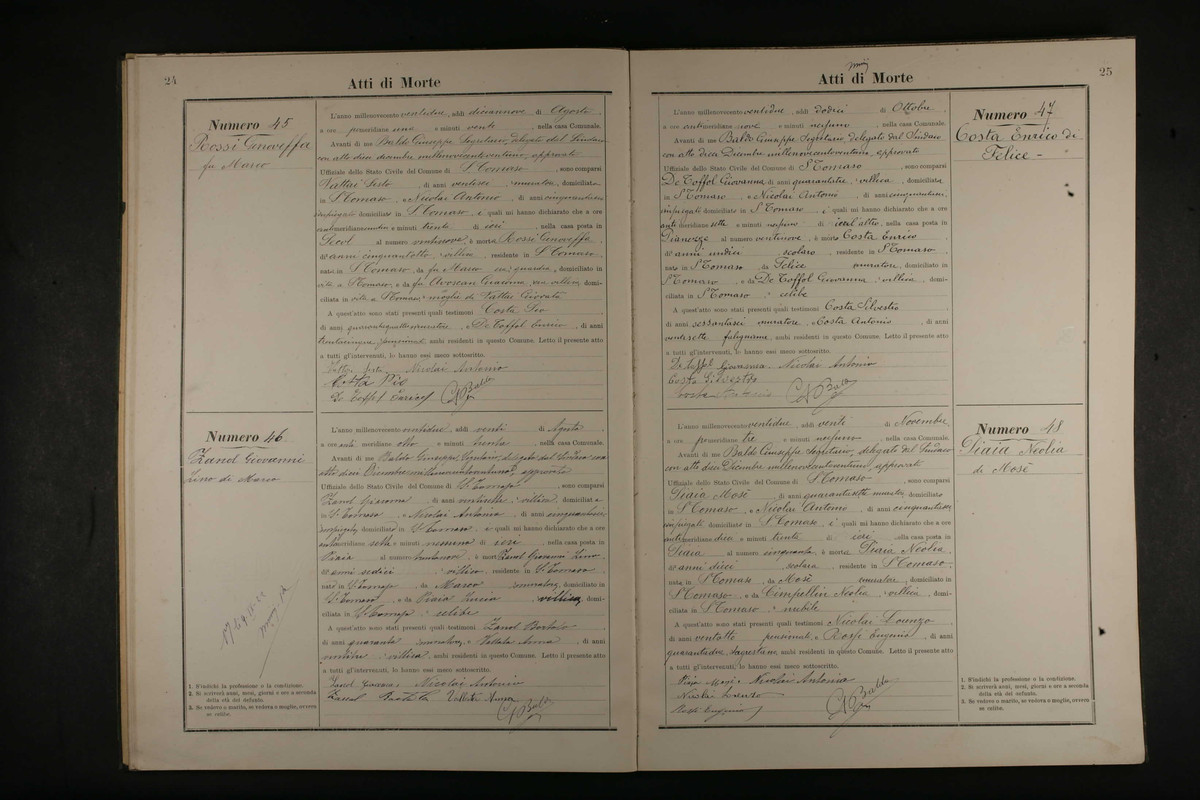 24
Atti di Morte
Numero 45
Rossi Genoveffa
fu Marco
L'anno millenovecento ventidue, addì diciannove di Agosto
a ore pomeridiane una e minuti venti, nella casa Comunale.
Avanti di me Baldo Giuseppe Segretario, delegato dal Sindaco
con atto dieci dicembre millenovecentoventuno, approvato
Ufficiale dello Stato Civile del Comune di S. Tomaso, sono comparsi
di anni ventisei, muratore, domiciliato
in S. Tomaso, e Nicolai Antonio, di anni cinquantasei
impiegato domiciliato in S. Tomaso, i quali mi hanno dichiarato che a ore
e minuti trenta di ieri, nella casa posta in
Pecol al numero ventinove, è morta Rossi Genoveffa
di anni cinquantotto, villica, residente in S. Tomaso
nata in S. Tomaso, da fu Marco, in guardia, domiciliato in
vita a S. Tomaso, e da fu Avoscan Giacoma, domi-
ciliata in vita a S. Tomaso, moglie di
A quest'atto sono stati presenti quali testimoni Costa Pio
di anni quarantaquattro, muratore, e De Toffol Enrico, di anni
trentacinque, ambi residenti in questo Comune. Letto il presente atto
a tutti gl'intervenuti, lo hanno essi meco sottoscritto.
Nicolai Antonio
Costa Pio
De Toffol Enrico G Baldo
Numero 46
Zanol Giovanni
Lino di Marco
L'anno millenovecento ventidue, addì venti di Agosto
a ore anti meridiane otto e minuti trenta, nella casa Comunale.
Avanti di me Baldo Giuseppe, Segretario, delegato dal Sindaco con
atto dieci Dicembre millenovecentoventuno, approvato
Ufficiale dello Stato Civile del Comune di S. Tomaso, sono comparsi
Zanol Giacomo, di anni ventisette, villico, domiciliato
in S. Tomaso e Nicolai Antonio, di anni cinquantasei
impiegato, domiciliato in S. Tomaso, i quali mi hanno dichiarato che a ore
antimeridiane sette e minuti nessuno di ieri, nella casa posta in
Piaia al numero trentanove, è morto Zanol Giovanni Lino
di anni sedici, villico, residente in S. Tomaso
nato in S. Tomaso, da Marco, muratore, domiciliato in
S. Tomaso, e da Piaia Lucia, villica, domi-
ciliata in S. Tomaso, celibe
A quest'atto sono stati presenti quali testimoni Zanol Bortolo
di anni quaranta, muratore, e Vallata Anna, di anni
villica, ambi residenti in questo Comune. Letto il presente atto
a tutti gl'intervenuti, lo hanno essi meco sottoscritto.
Zanol Giacomo Nicolai Antonio
Zanol Bortolo Vallata Anna
G Baldo
1. S'indichi la professione o la condizione.
2. Si scriverà anni, mesi, giorni e ore a seconda
della età del defunto.
3. Se vedovo o marito, se vedova o moglie, ovvero
se celibe.
25
Atti di Morte
L'anno millenovecento ventidue, addì dodici di Ottobre,
a ore antimeridiane nove e minuti nessuno, nella casa Comunale.
Avanti di me Baldo Giuseppe Segretario, delegato dal Sindaco
con atto dieci Decembre millenovecentoventuno, approvato
Ufficiale dello Stato Civile del Comune di S. Tomaso, sono comparsi
De Toffol Giovanna, di anni quarantatre, villica, domiciliata
in S. Tomaso, e Nicolai Antonio, di anni cinquantasei
impiegato domiciliato in S. Tomaso, i quali mi hanno dichiarato che a ore
anti meridiane sette e minuti nessuno di ieri l'altro, nella casa posta in
Pianezze al numero ventinove, è morto Costa Enrico
di anni undici, scolaro, residente in S. Tomaso
nato in S. Tomaso, da Felice muratore, domiciliato in
S. Tomaso, e da De Toffol Giovanna, villica, domi-
ciliata in S. Tomaso, celibe
A quest'atto sono stati presenti quali testimoni Costa Silvestro
di anni sessantasei muratore, e Costa Antonio, di anni
ventisette falegname, ambi residenti in questo Comune. Letto il presente atto
a tutti gl'intervenuti, lo hanno essi meco sottoscritto.
De Toffol Giovanna Nicolai Antonio
Costa Silvestro
Costa Antonio G Baldo
Numero 47
Costa Enrico di
Felice -
L'anno millenovecento ventidue, addì venti di Novembre,
a ore pomeridiane tre e minuti nessuno, nella casa Comunale.
Avanti di me Baldo Giuseppe Segretario, delegato dal Sindaco
con atto dieci Decembre millenovecentoventuno, approvato
Ufficiale dello Stato Civile del Comune di S. Tomaso, sono comparsi
Piaia Mosè, di anni quarantasette, domiciliato
in S. Tomaso, e Nicolai Antonio, di anni cinquantasei
impiegato domiciliato in S. Tomaso, i quali mi hanno dichiarato che a ore
antimeridiane dieci e minuti trenta di ieri, nella casa posta in
Piaia al numero cinquanta, è morta Piaia Neolia
di anni dieci, scolara, residente in S. Tomaso,
nata in S. Tomaso, da Mosè muratore, domiciliato in
S. Tomaso, e da villica, domi-
ciliata in S. Tomaso, nubile
A quest'atto sono stati presenti quali testimoni Nicolai Lorenzo
di anni ventotto pensionato, e Rossi Eugenio, di anni
quarantadue, sagrestano, ambi residenti in questo Comune. Letto il presente atto
a tutti gl'intervenuti, lo hanno essi meco sottoscritto.
Piaia Mosè Nicolai Antonio
Nicolai Lorenzo
Rossi Eugenio G Baldo
Numero 48
Piaia Neolia
di Mosè
1. S'indichi la professione o la condizione.
2. Si scriverà anni, mesi, giorni e ore a seconda
della età del defunto.
3. Se vedovo o marito, se vedova o moglie, ovvero
se celibe.